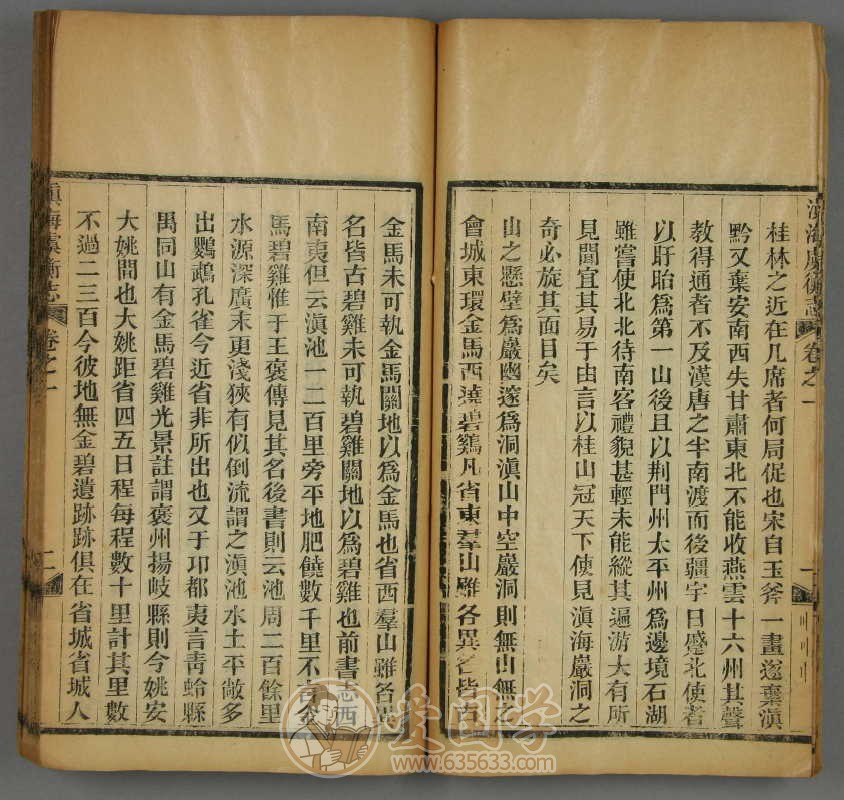 滇海虞衡志 卷之一
桂林之近在几席者何局促也宋自玉斧一畫遂棄滇
黔又棄安南西失甘肅東北不能收燕雲十六州其聲
教得通者不及漢唐之半南渡而後疆宇日蹙北使者
以盱眙爲第一山後且以荆門州太平州爲邊境石湖
雖嘗使北北待南客禮貌甚輕未能縱其遍游大有所
見聞宜其易于由言以桂山冠天下使見滇海巖洞之
奇必旋其面目矣
山之懸壁爲巖幽邃爲洞滇山中空巖洞則無山無之
會城東環金馬西遶碧鷄凡省東羣山雖各異名皆古
金馬未可執金馬關地以爲金馬也省西羣山雖各異
名皆古碧雞未可執碧雞關地以爲碧雞也前書志西
南夷但云滇池一二百里旁平地肥饒數千里不言金
馬碧雞惟于王褒傳見其名後書則云池周二百餘里
水源深廣末更淺狹有似倒流謂之滇池水土平敞多
出鸚鵡孔雀今近省非所出也又于卭都夷言靑蛉縣
禺同山有金馬碧雞光景註謂褒州揚岐縣則今姚安
大姚間也大姚距省四五日程每程數十里計其里數
不過二三百今彼地無金碧遺跡跡俱在省城省城人
滇海虞衡志 卷之一 二
爱国学
www.635633.com